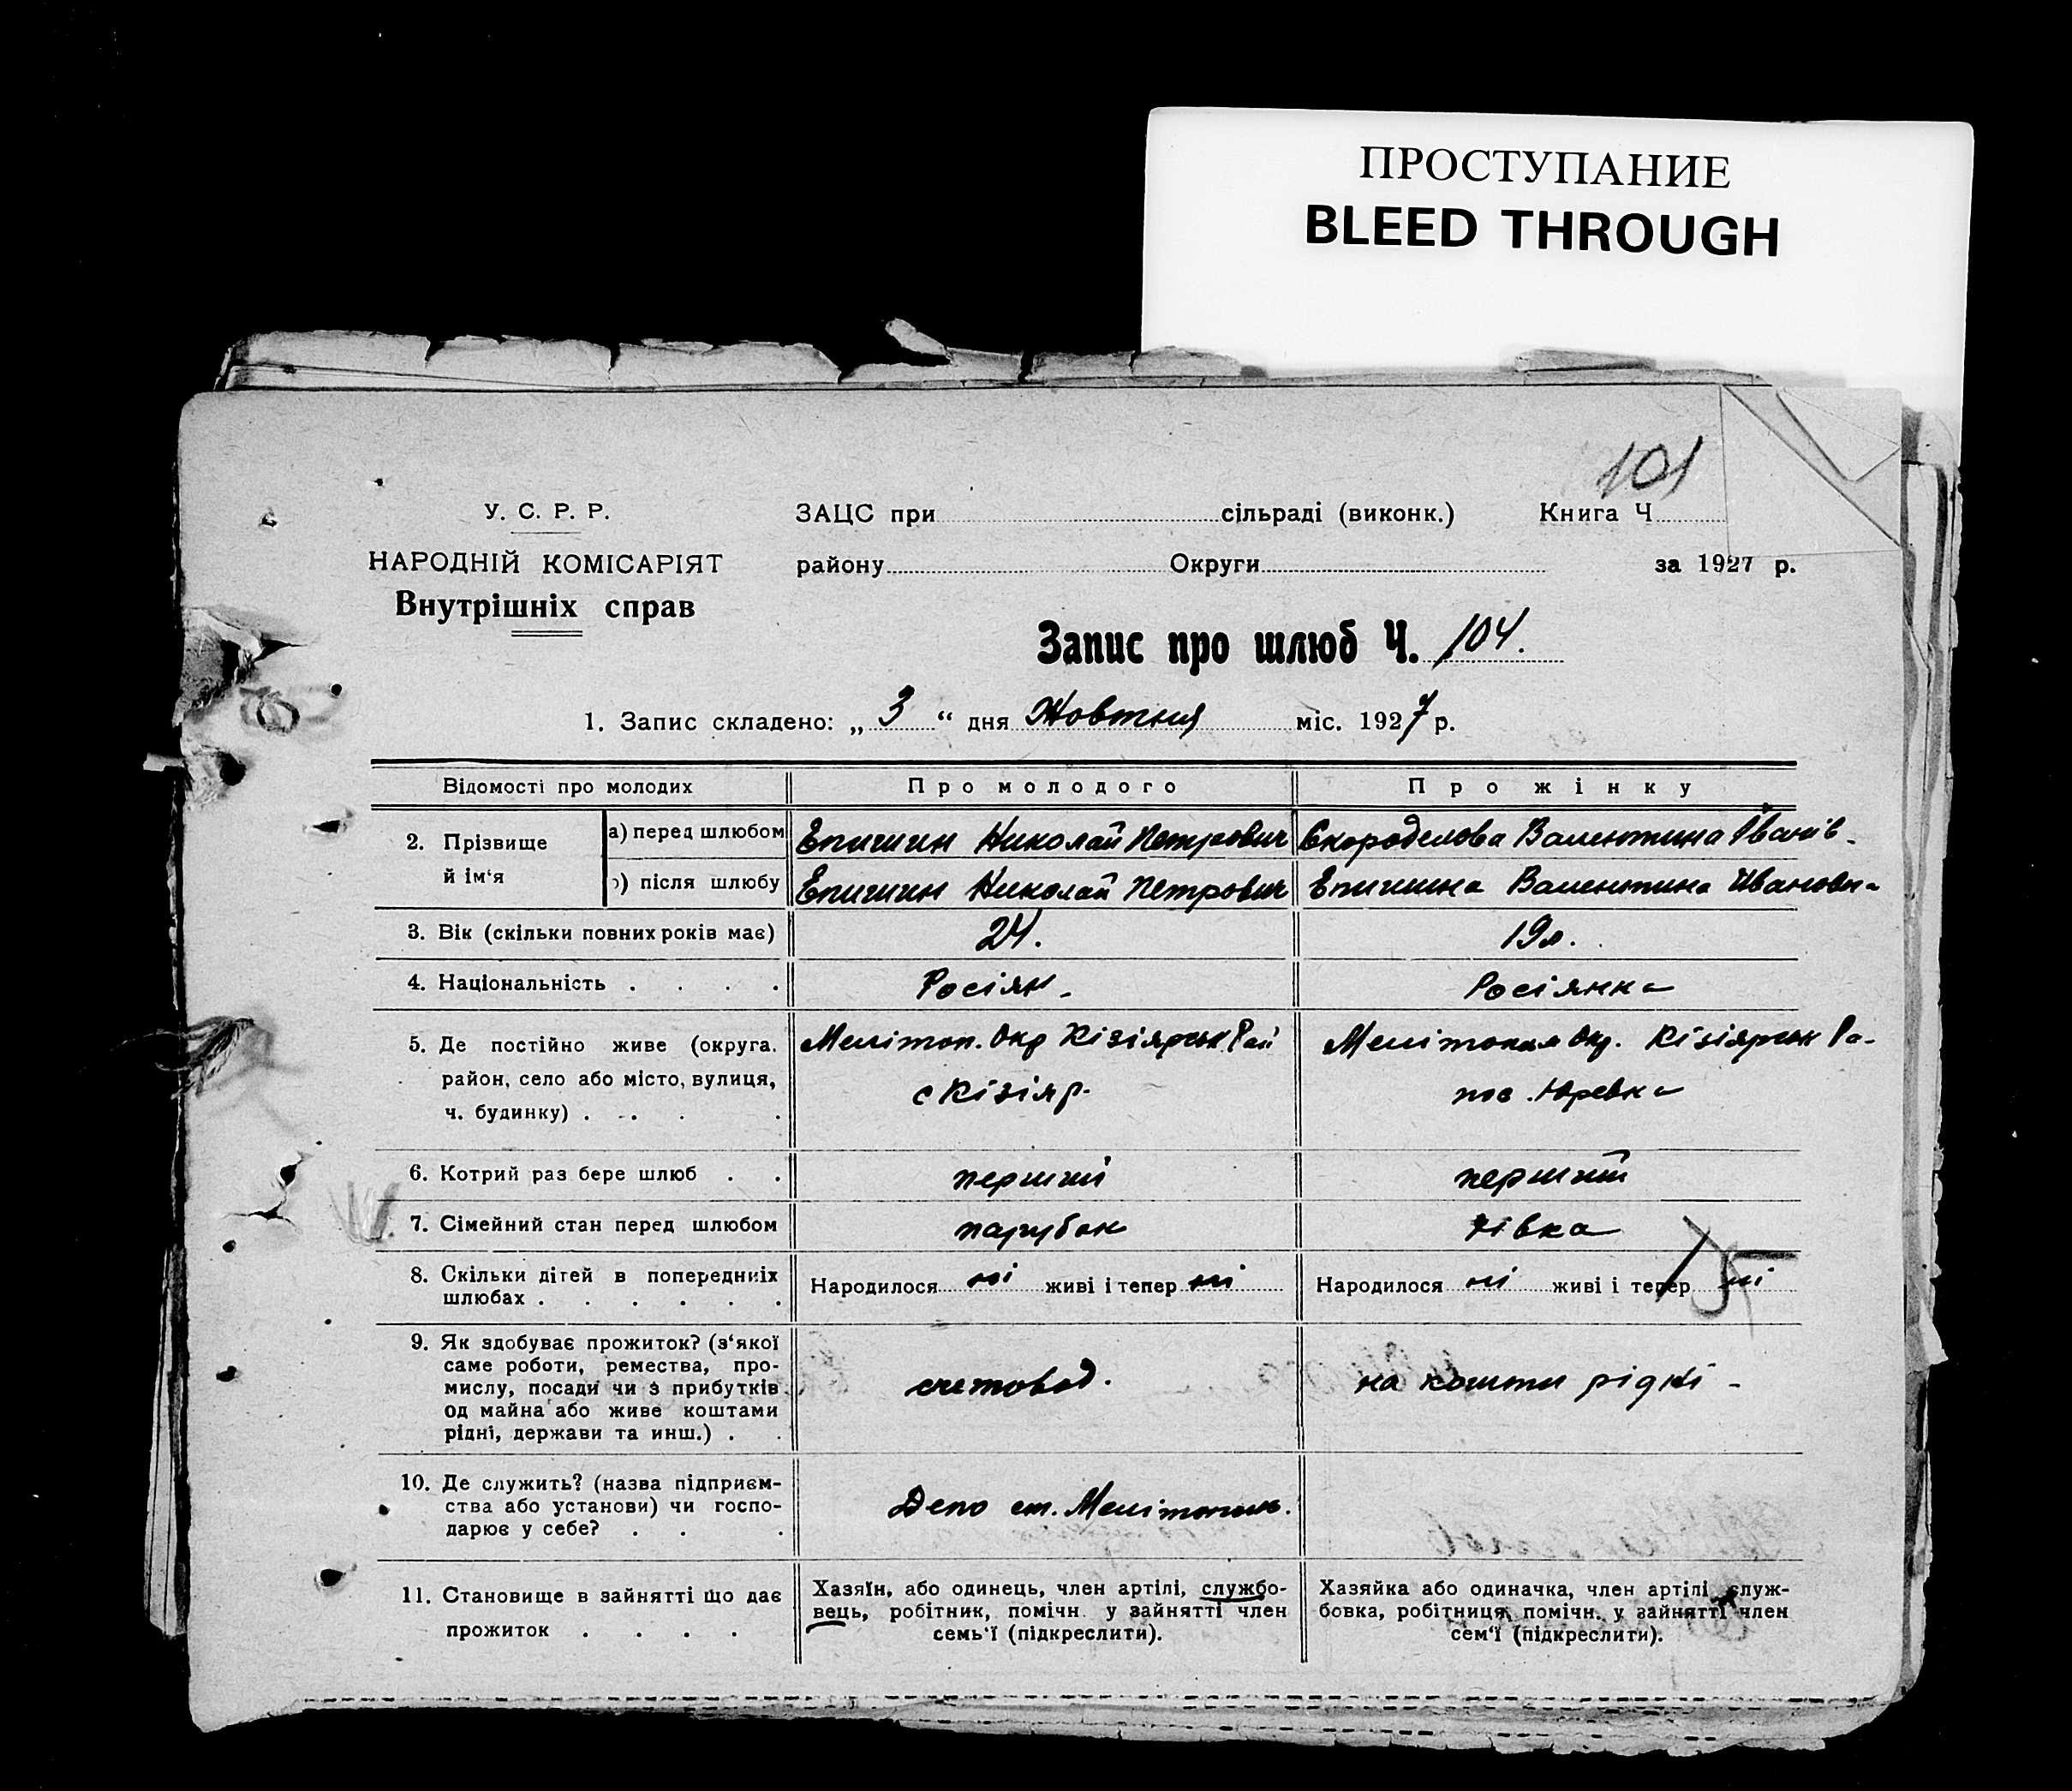 ПРОСТУПАНИЕ
BLEED THROUGH
101
У. С. Р. Р.
НАРОДНІЙ КОМІСАРІЯТ
Внутрішніх справ
ЗАЦС при сільраді (виконк.) Книга Ч
району Округи за 1927 р.
Запис про шлюб Ч. 104.
1. Запис складено: „ 3 “ дня Жовтня міс. 1927 р.
Відомості про молодих Про молодого Про жінку
2. Прізвище й ім‘я а) перед шлюбом Епишин Николай Петрович Скороделова Валентина Іванів-
) після шлюбу Епишин Николай Петрович Епишина Валентина Ивановн-
3. Вік (скільки повних років має) 24. 19 л.
4. Національність . . . . Росіян- Росіянка
5. Де постійно живе (округа, Мелітоп. Окр Кізіярськ Рай Мелітополя Окр. Кізіярськ Ра-
район, село або місто, вулиця, с Кізіяр. пос. Юревка
ч. будинку) . . . .
6. Котрий раз бере шлюб . . перший перший
7. Сімейний стан перед шлюбом парубок дівка
8. Скільки дітей в попередніх Народилося ні живі і тепер ні Народилося ні живі і тепер ні
шлюбах . . . . . .
9. Як здобуває прожиток? (з‘якої
саме роботи, ремества, про-
мислу, посади чи з прибутків счетовод. на кошти рідні -
од майна або живе коштами
рідні, держави та инш.) . .
10. Де служить? (назва підприєм-
ства або установи) чи госпо- Депо ст. Мелітополь.
дарює у себе? . . .
11. Становище в зайнятті що дає Хазяїн, або одинець, член артілі, службо- Хазяйка або одиначка, член артілі, служ-
прожиток . . . . вець, робітник, помічн. у зайнятті член бовка, робітниця, помічн. у зайнятті член
семь‘ї (підкреслити). сем‘ї (підкреслити).